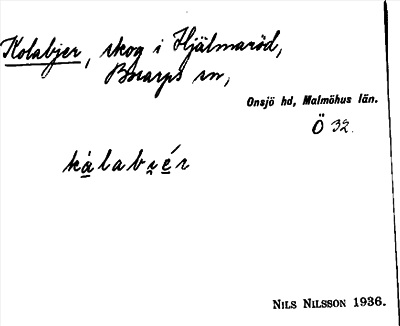 Kolabjer, skog i Hjälmaröd,
Bosarps sn,
Onsjö hd, Malmöhus län.
Ö 32.
kålabi̯ér
NILS NILSSON 1936.